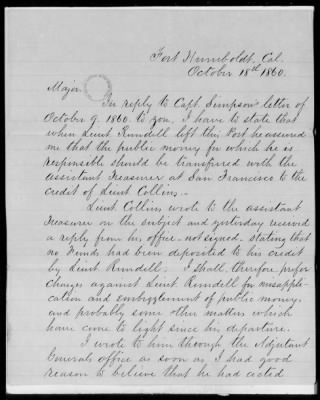 Fort Humboldt, Cal.
October 18th 1860.
Major.
In reply to Capt. Simpson's letter of
October 9. 1860. to you, I have to state that
when Lieut Rundell left this Post he assured
me that the public money for which he is
responsible should be transferred with the
assistant Treasurer at San Francisco to the
credit of Lieut Collins.-
Lieut Collins wrote to the assistant
Treasurer on the subject and yesterday received
a reply from his office - not signed - stating that
no Funds had been deposited to his credit
by Lieut. Rundell. I shall, therefore, prefer
charges against Lieut. Rundell for misappli-
cation and embezzlement of public money,
and probably some other matters which
have come to light since his departure.
I wrote to him through the Adjutant
Generals office as soon as I had good
reason to believe that he had acted